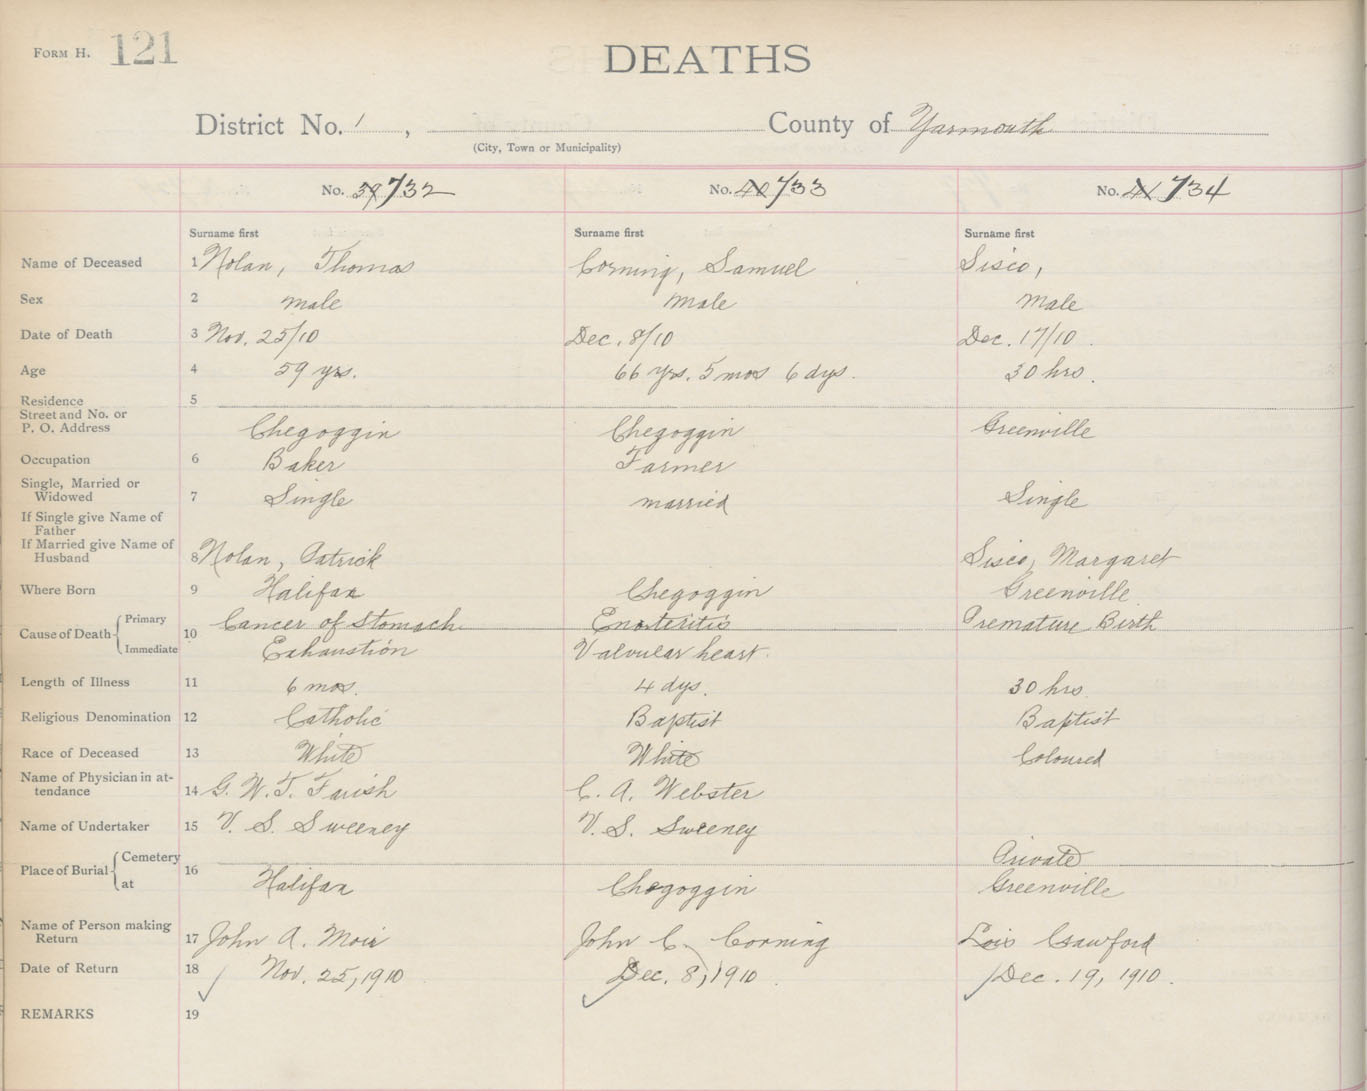 FORM H. 121 DEATHS
District No. 1, County of Yarmouth
(City, Town or Municipality)
No. 39 732 No. 40 733 No. 41 734
Surname first Surname first Surname first
Name of Deceased 1 Nolan, Thomas Corning, Samuel Sisco,
Sex 2 male Male Male
Date of Death 3 Nov. 25/10 Dec. 8/10 Dec. 17/10.
Age 4 59 yrs. 66 Yrs. 5 mos 6 dys. 30 hrs.
Residence 5
Street and No. or
P. O. Address Chegoggin Chegoggin Greenville
Occupation 6 Baker Farmer
Single, Married or
Widowed 7 Single married Single
If Single give Name of
Father
If Married give Name of
Husband 8 Nolan, Patrick Sisco, Margaret
Where Born 9 Halifax Chegoggin Greenville
Cause of Death Primary 10 Cancer of Stomach Enoteritis Premature Birth
Immediate Exhaustion Valvular heart.
Length of Illness 11 6 mos. 4 dys. 30 hrs.
Religious Denomination 12 Catholic Baptist Baptist
Race of Deceased 13 White White Coloured
Name of Physician in at-
tendance 14 G. W. T. Farish C. A. Webster
Name of Undertaker 15 V. S. Sweeney V. S. Sweeney
Place of Burial Cemetery 16 Private
at Halifax Chegoggin Greenville
Name of Person making
Return 17 John A. Moir John C. Corning Lois Crawford
Date of Return 18 Nov. 25, 1910 Dec. 8, 1910. Dec. 19, 1910.
REMARKS 19